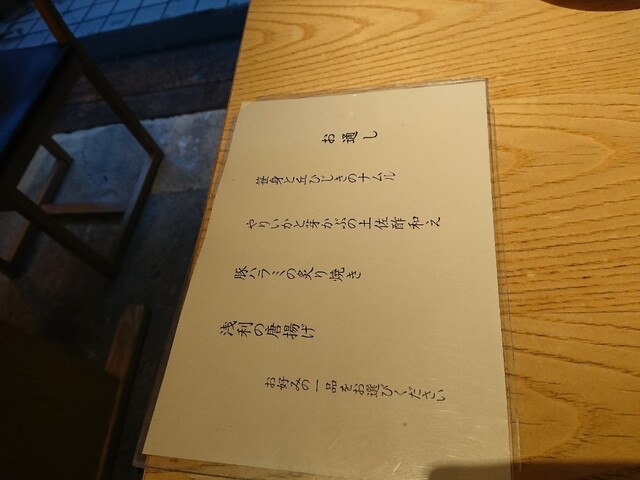 お通し
笹身と丘ひじきのナムル
やりいかと芽かぶの土佐酢和え
豚ハラミの炙り焼き
浅利の唐揚げ
お好みの一品をお選びください